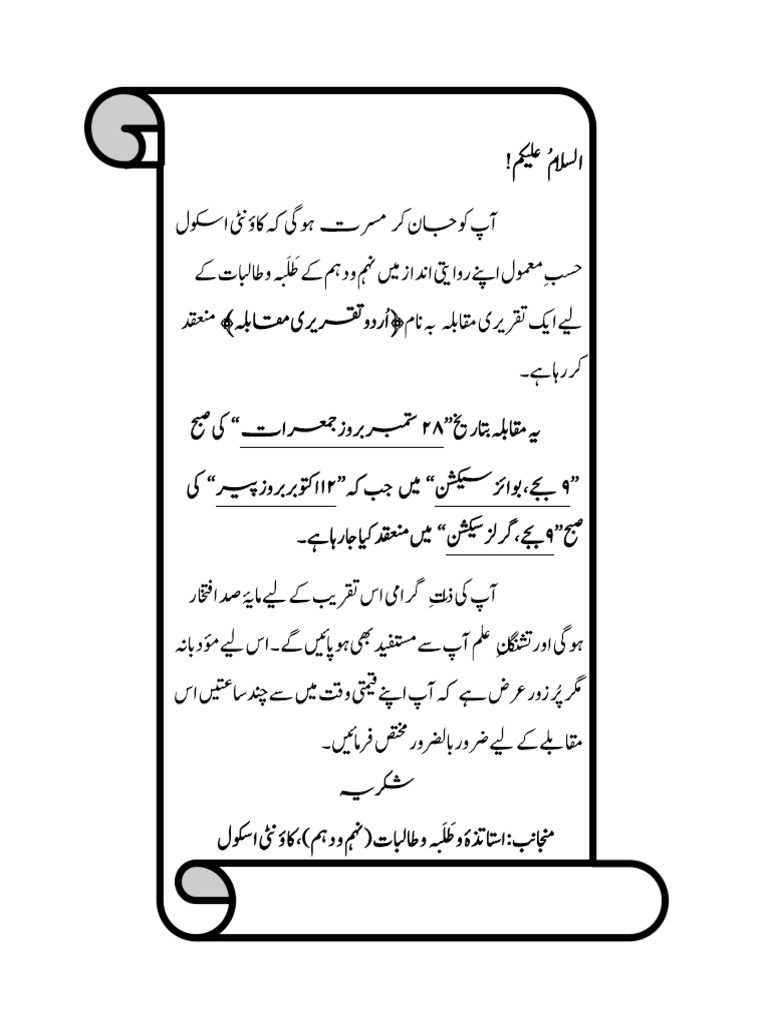 السلامُ علیکم!
آپ کو جان کر مسرت ہوگی کہ کاؤنٹی اسکول
حسبِ معمول اپنے روایتی انداز میں نہم و دہم کے طَلَبہ و طالبات کے
لیے ایک تقریری مقابلہ بہ نام ﴿اُردو تقریری مقابلہ﴾ منعقد
کر رہا ہے۔
یہ مقابلہ بتاریخ ”۲۸ ستمبر بروز جمعرات“ کی صبح
”۹ بجے، بوائز سیکشن“ میں جب کہ ”۱۲اکتوبر بروز پیر“ کی
صبح ”۹ بجے، گرلز سیکشن“ میں منعقد کیا جا رہا ہے۔
آپ کی ذاتِ گرامی اس تقریب کے لیے مایۂ صد افتخار
ہوگی اور تشنگانِ علم آپ سے مستفید بھی ہو پائیں گے۔ اس لیے مؤدبانہ
مگر پُر زور عرض ہے کہ آپ اپنے قیمتی وقت میں سے چند ساعتیں اس
مقابلے کے لیے ضرور بالضرور مختص فرمائیں۔
شکریہ
منجانب: اساتذۂ و طَلَبہ و طالبات (نہم و دہم)، کاؤنٹی اسکول